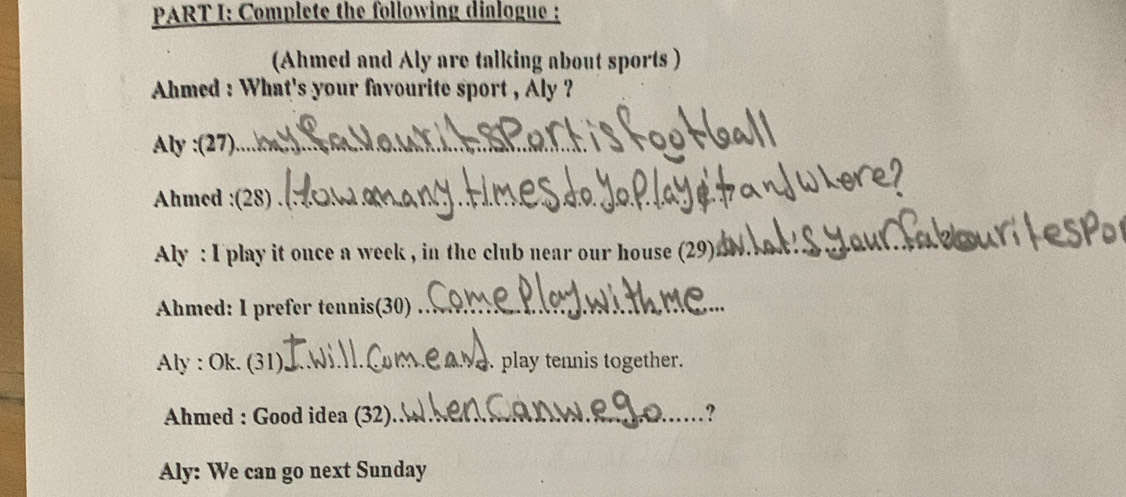 PART I: Complete the following dialogue :
(Ahmed and Aly are talking about sports )
Ahmed : What's your favourite sport , Aly ?
Aly :(27)....my favourit sport is football
Ahmed :(28) .How many times do yo play it and where?
Aly : I play it once a week , in the club near our house (29) what's your favourite spor
Ahmed: I prefer tennis(30) ..Come play with me...
Aly : Ok. (31) I will Come and. play tennis together.
Ahmed : Good idea (32)..when Can we go......?
Aly: We can go next Sunday